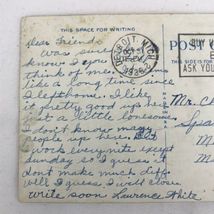 THIS SPACE FOR WRITING
POST C
Dear Friends
Was sure
know I you
think of me.
like a long time since
I left home. I like
it pretty good up here
just a little lonesome.
I don't know many
people up here.
work everynite except
sunday so I guess it
dont make much diff
Well I guess I will close
write soon Lawrence White
DETROIT, MICH.
THIS SIDE IS FOR
ASK YOU
Mr. C
Spa
M